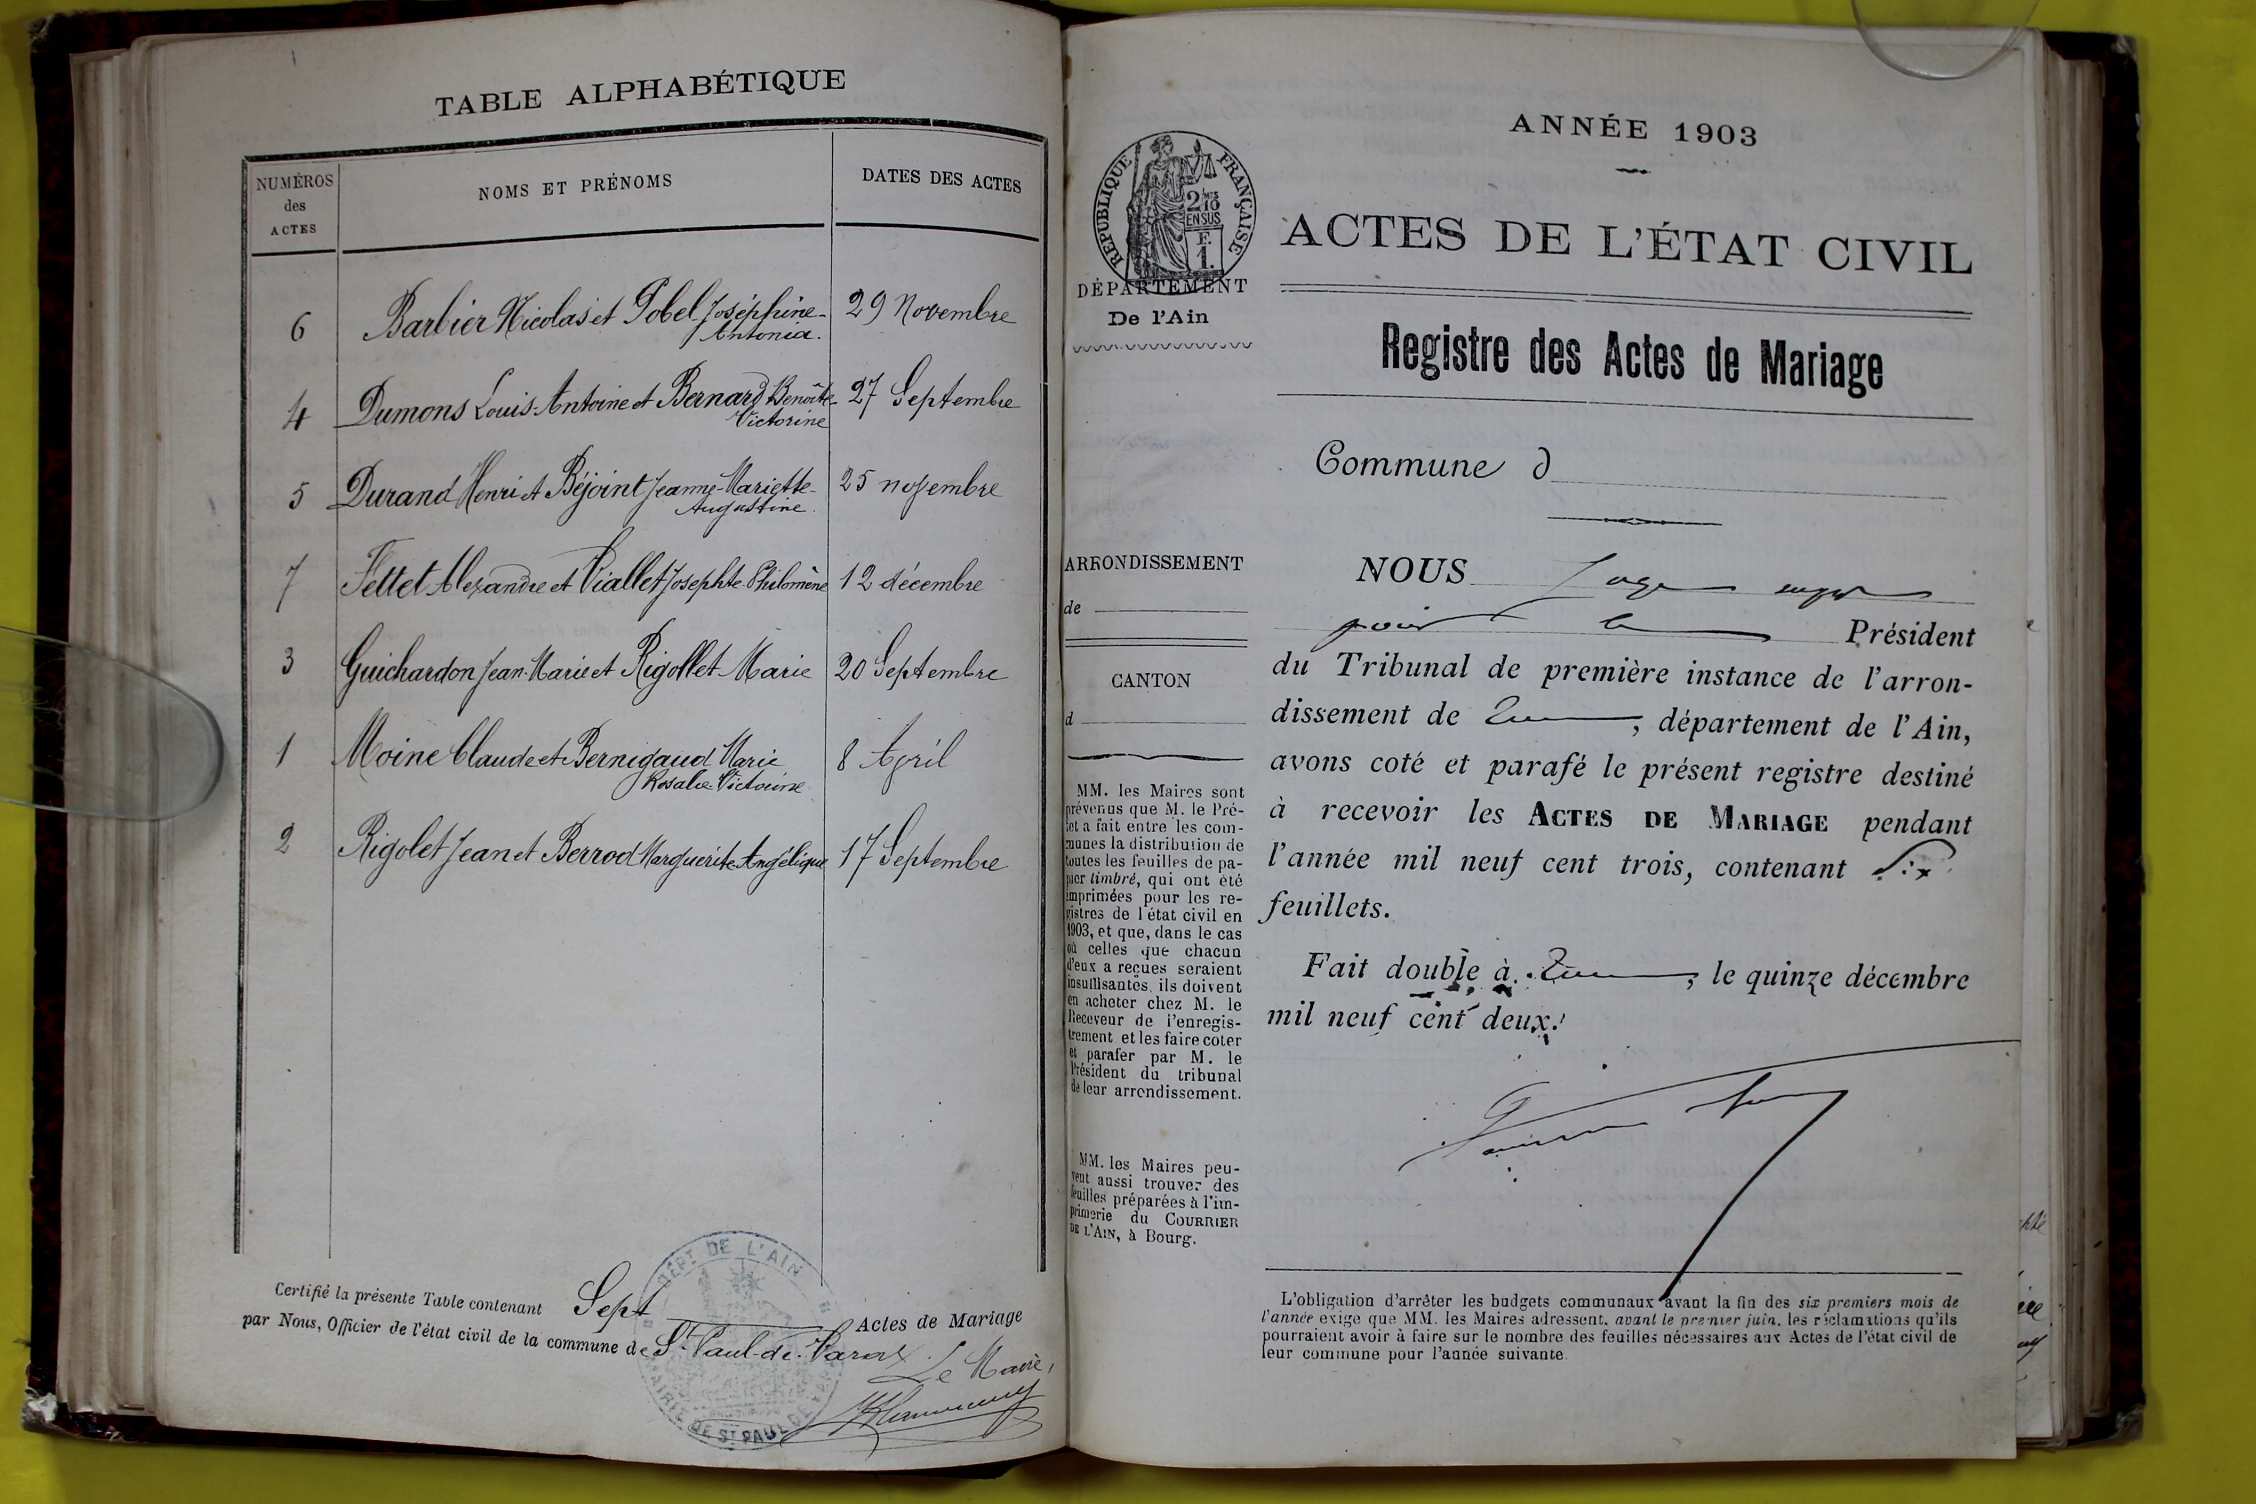 TABLE ALPHABÉTIQUE
NUMÉROS
des
ACTES
NOMS ET PRÉNOMS
DATES DES ACTES
6 Barbier Nicolas et Gobel Joséphine- 29 Novembre
Antonia.
4 Dumons Louis-Antoine et Bernard Benoîte- 27 Septembre
Victorine
5 Durand Henri et Béjoint Jeanne-Mariette- 25 novembre
Augustine.
7 Fettet Alexandre et Viallet Josephte-Philomène 12 décembre
3 Guichardon Jean-Marie et Rigollet Marie 20 Septembre
1 Moine Claude et Bernigaud Marie 8 April
Rosalie Victorine
2 Rigolet Jean et Berrod Marguerite Angélique 17 Septembre
Certifié la présente Table contenant Sept Actes de Mariage
par Nous, Officier de l'état civil de la commune de St Paul-de-Varax.
Le Maire,
DÉPT DE L'AIN
MAIRIE DE ST PAUL DE VARAX
ANNÉE 1903
RÉPUBLIQUE FRANÇAISE
2/10
EN SUS
F.
1.
DÉPARTEMENT
De l'Ain
ACTES DE L'ÉTAT CIVIL
Registre des Actes de Mariage
Commune d
ARRONDISSEMENT
de
CANTON
d
MM. les Maires sont
prévenus que M. le Pré-
fet a fait entre les com-
munes la distribution de
toutes les feuilles de pa-
pier timbré, qui ont été
imprimées pour les re-
gistres de l'état civil en
1903, et que, dans le cas
où celles que chacun
d'eux a reçues seraient
insuffisantes, ils doivent
en acheter chez M. le
Receveur de l'enregis-
trement et les faire coter
et parafer par M. le
Président du tribunal
de leur arrondissement.
MM. les Maires peu-
vent aussi trouver des
feuilles préparées à l'im-
primerie du COURRIER
DE L'AIN, à Bourg.
NOUS Juge
pour le Président
du Tribunal de première instance de l'arron-
dissement de , département de l'Ain,
avons coté et parafé le présent registre destiné
à recevoir les ACTES DE MARIAGE pendant
l'année mil neuf cent trois, contenant Six
feuillets.
Fait double à , le quinze décembre
mil neuf cent deux.
L'obligation d'arrêter les budgets communaux avant la fin des six premiers mois de
l'année exige que MM. les Maires adressent, avant le premier juin, les réclamations qu'ils
pourraient avoir à faire sur le nombre des feuilles nécessaires aux Actes de l'état civil de
leur commune pour l'année suivante.